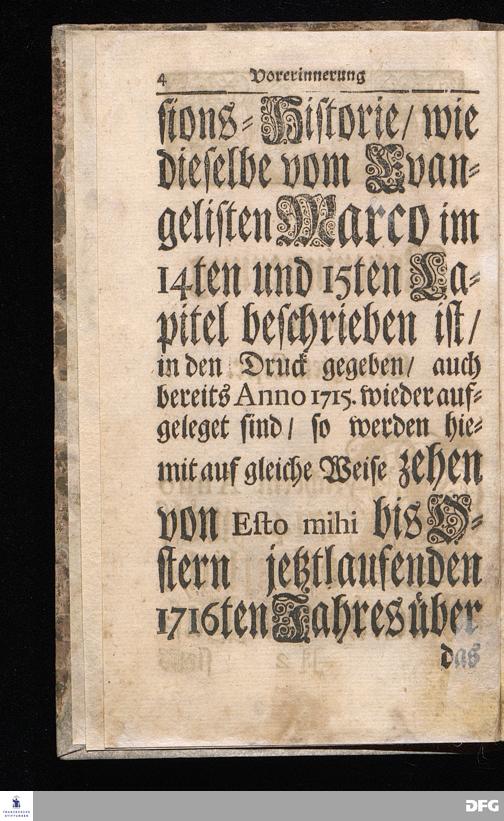 4 Vorerinnerung
sions-Historie/ wie
dieselbe vom Evan-
gelisten Marco im
14ten und 15ten Ca-
pitel beschrieben ist/
in den Druck gegeben/ auch
bereits Anno 1715. wieder auf-
geleget sind/ so werden hie-
mit auf gleiche Weise zehen
von Esto mihi bis O-
stern jetztlaufenden
1716ten Jahres über
das
FRANCKESCHE
STIFTUNGEN
DFG